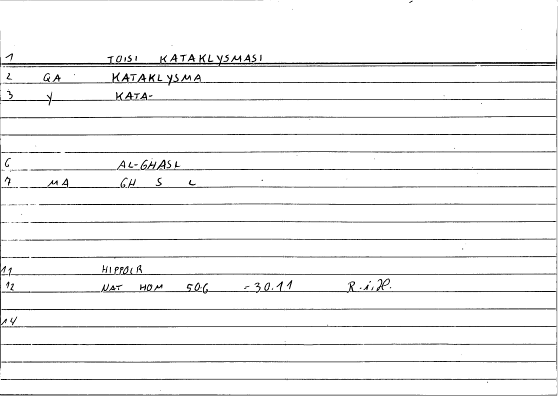 1 TOISI KATAKLYSMASI
2 GA KATAKLYSMA
3 y KATA-
6 AL-GHASL
7 MA GH S L
11 HIPPOCR
12 NAT HOM 506 -30.11 R.i.H.
14